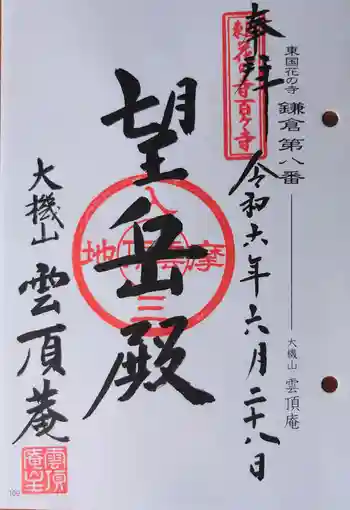 東国花の寺 鎌倉 第八番
大機山 雲頂庵
奉拝
東国花の寺百ヶ寺
令和六年六月二十八日
望岳殿
大機山 雲頂菴
109